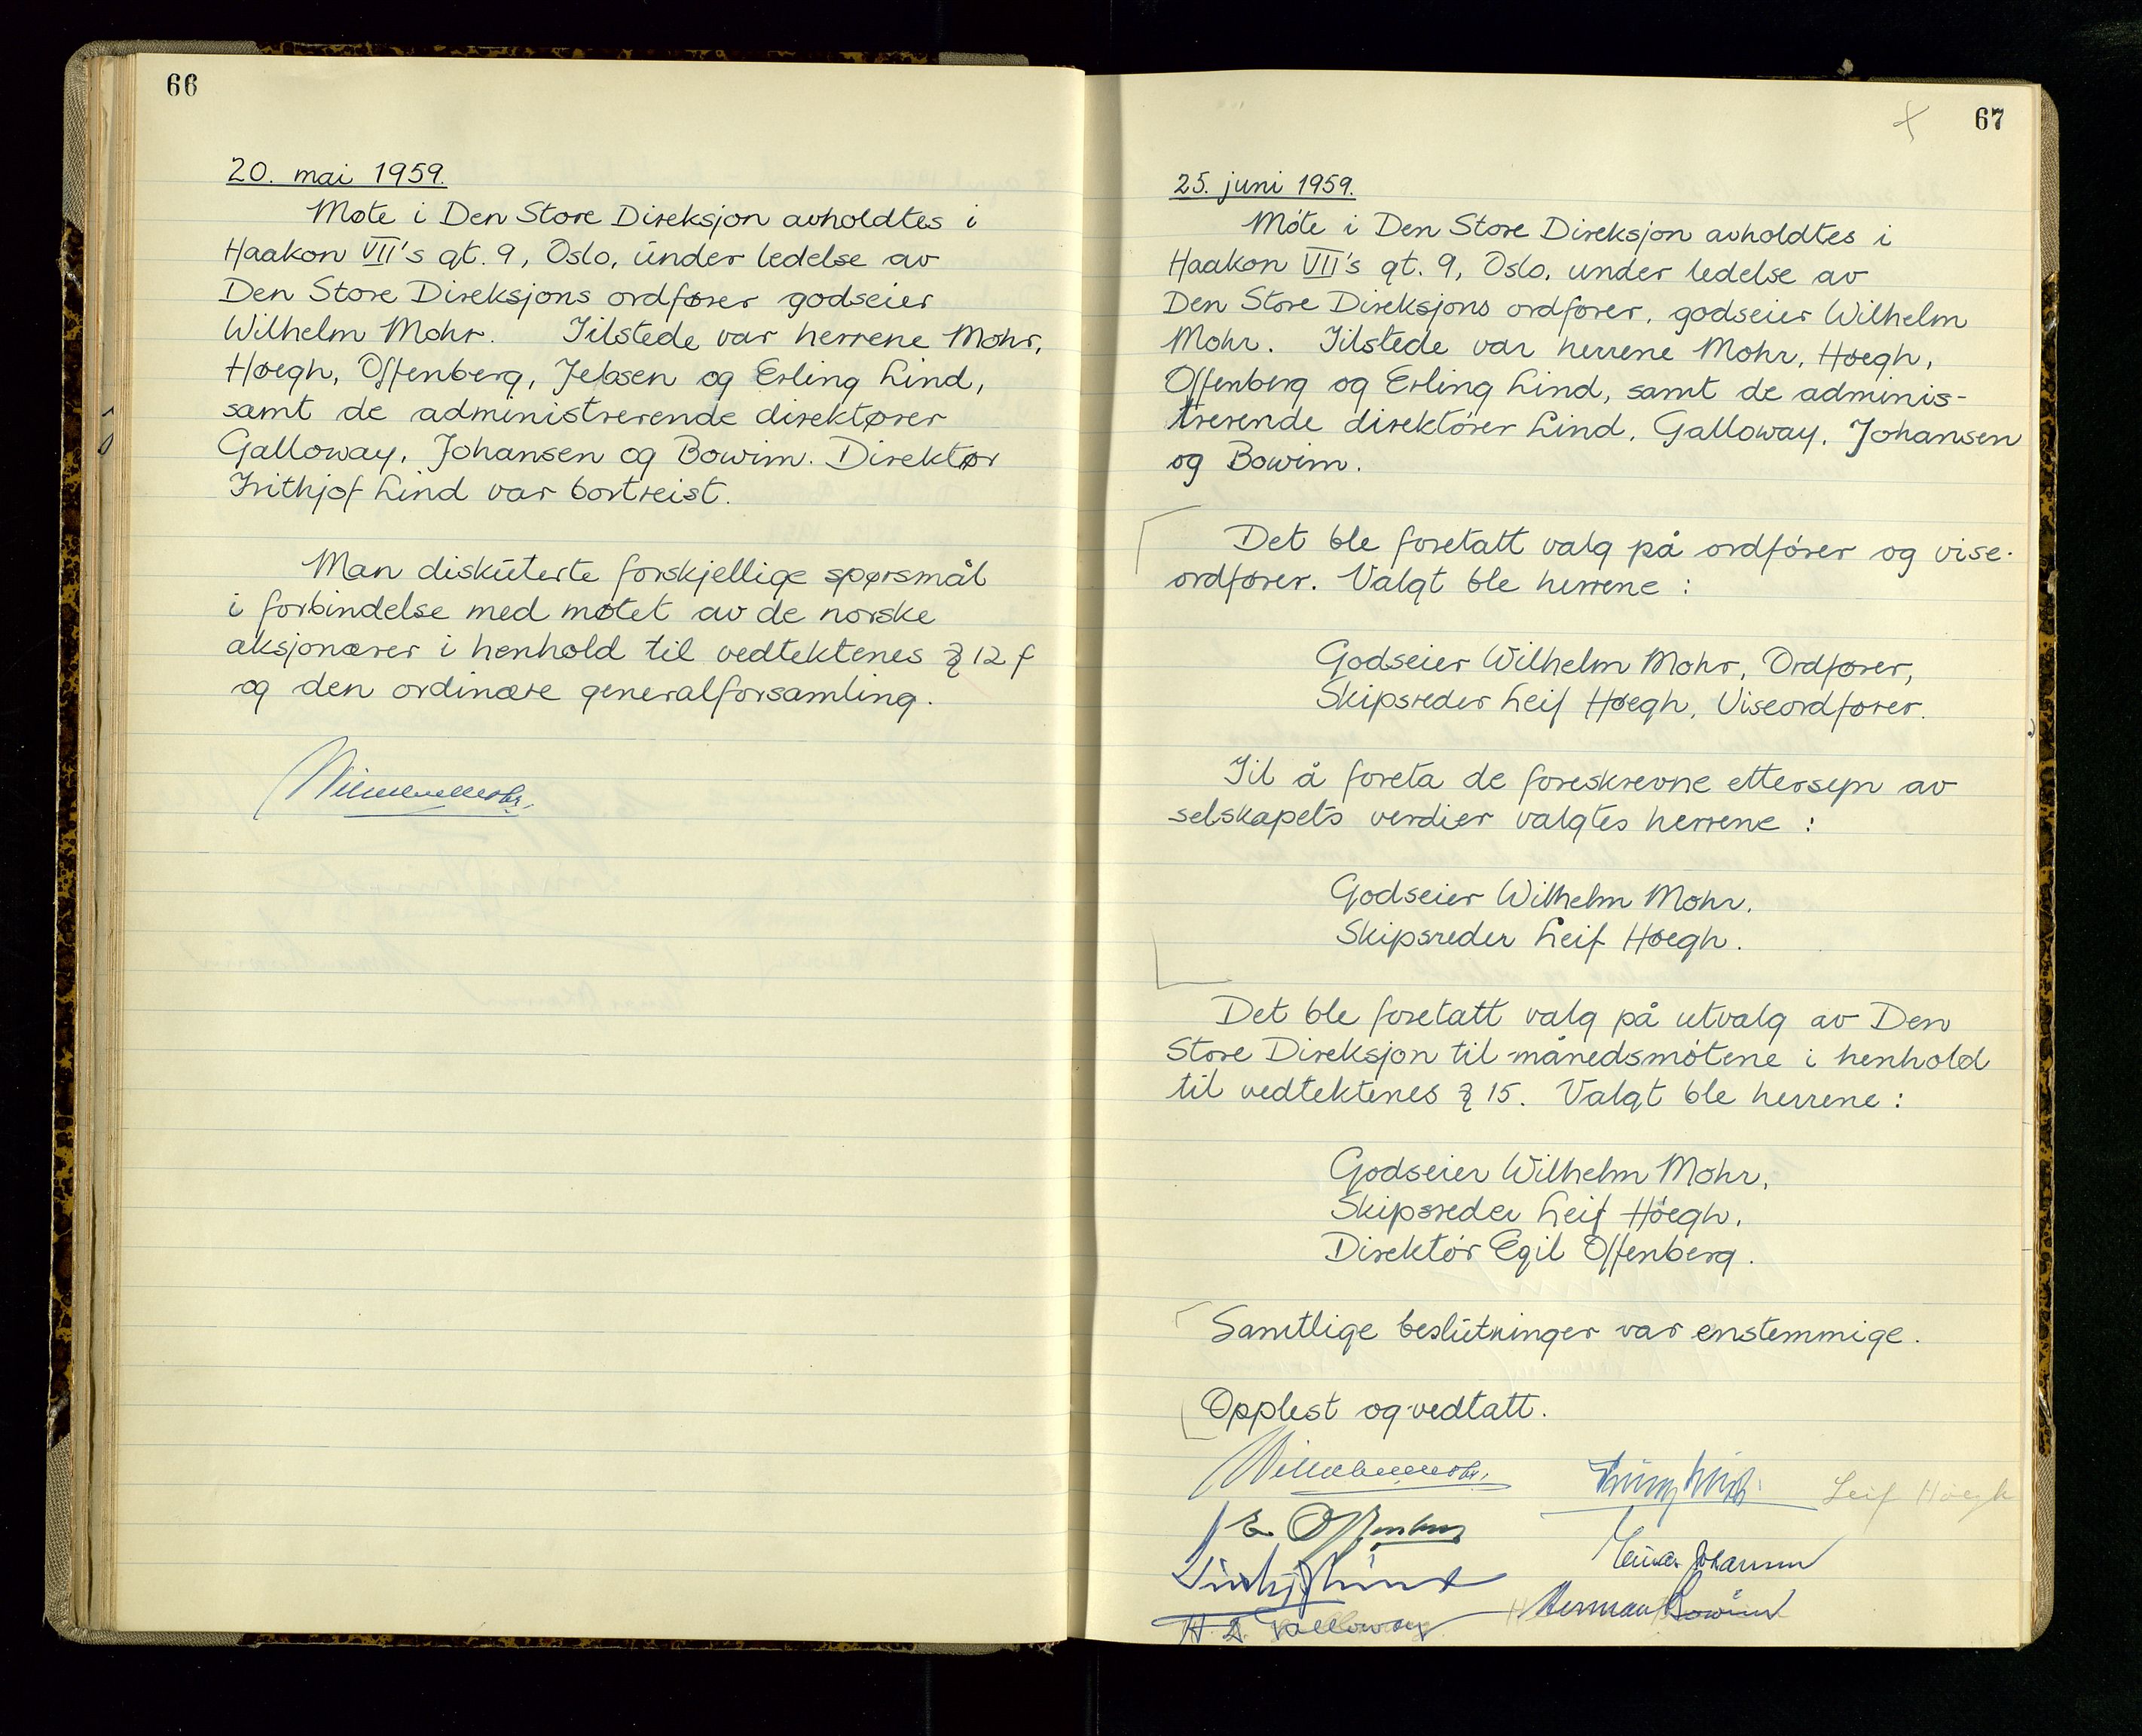 66
20. mai 1959.
Møte i Den Store Direksjon avholdtes i
Haakon VII's gt. 9, Oslo, under ledelse av
Den Store Direksjons ordfører godseier
Wilhelm Mohr. Tilstede var herrene Mohr,
Høegh, Offenberg, Jebsen og Erling Lind,
samt de administrerende direktører
Galloway, Johansen og Bowim. Direktør
Frithjof Lind var bortreist.
Man diskuterte forskjellige spørsmål
i forbindelse med møtet av de norske
aksjonærer i henhold til vedtektenes § 12 f
og den ordinære generalforsamling.
Wilhelm Mohr.
67
25. juni 1959.
Møte i Den Store Direksjon avholdtes i
Haakon VII's gt. 9, Oslo, under ledelse av
Den Store Direksjons ordfører, godseier Wilhelm
Mohr. Tilstede var herrene Mohr, Høegh,
Offenberg og Erling Lind, samt de adminis-
trerende direktører Lind, Galloway, Johansen
og Bowim.
Det ble foretatt valg på ordfører og vise-
ordfører. Valgt ble herrene :
Godseier Wilhelm Mohr, Ordfører,
Skipsreder Leif Høegh, Viseordfører.
Til å foreta de foreskrevne ettersyn av
selskapets verdier valgtes herrene :
Godseier Wilhelm Mohr,
Skipsreder Leif Høegh.
Det ble foretatt valg på utvalg av Den
Store Direksjon til månedsmøtene i henhold
til vedtektenes § 15. Valgt ble herrene :
Godseier Wilhelm Mohr,
Skipsreder Leif Høegh,
Direktør Egil Offenberg.
Samtlige beslutninger var enstemmige.
Opplest og vedtatt.
Wilhelm Mohr.
Erling Lind
Leif Høegh
E. Offenberg
Einar Johansen
Frithjof Lind
H. D. Galloway
Herman Bowim